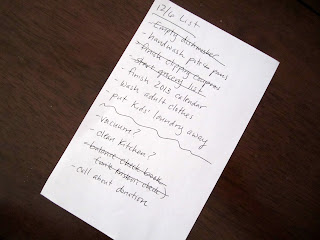 12/6 List
- Empty dishwasher
- handwash pots + pans
- finish clipping coupons
- start grocery list
- finish 2013 calendar
- wash adult clothes
- put kids' laundry away
- vacuum?
- clean kitchen?
- balance check book
- call about donation